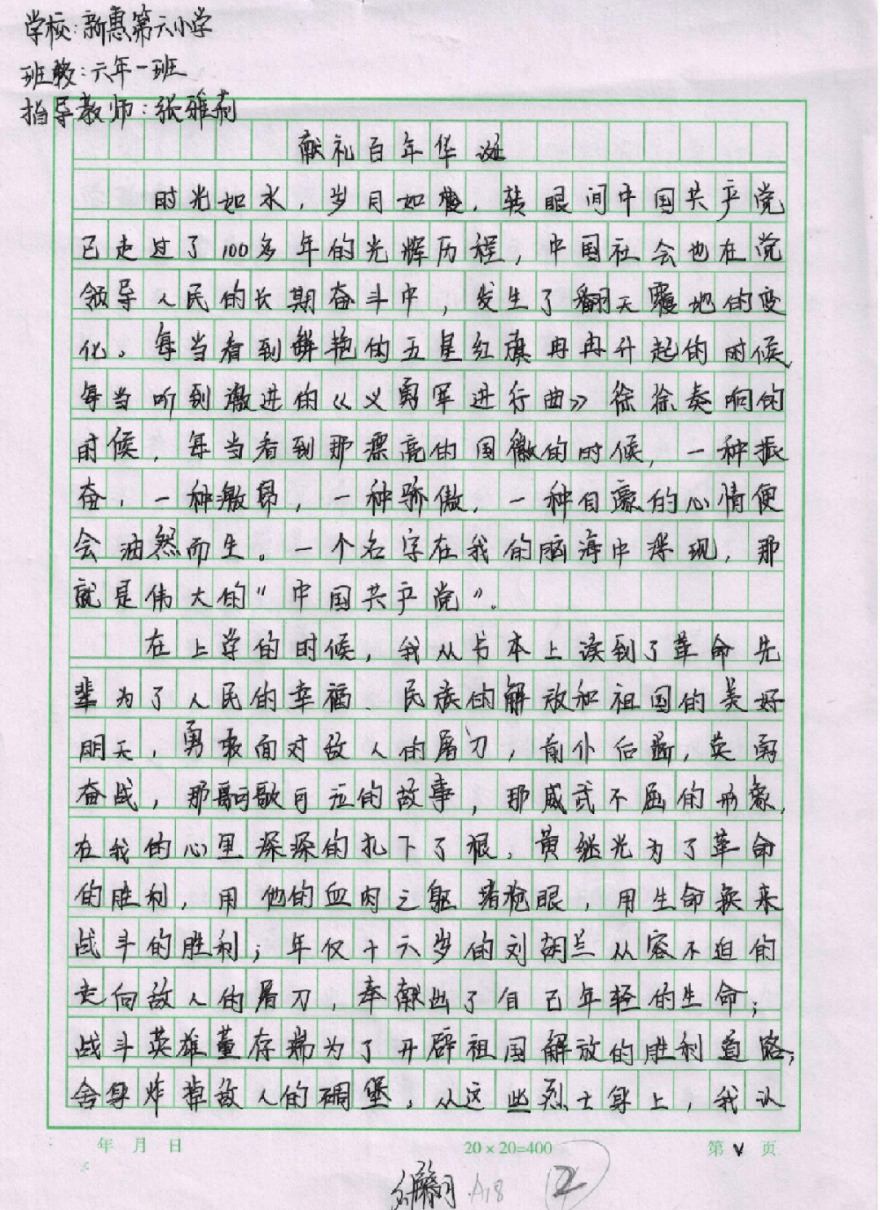 学校:新惠第六小学
班级:六年一班
指导教师:张雅莉
献礼百年华诞
时光如水,岁月如梭,转眼间中国共产党
已走过了100多年的光辉历程,中国社会也在党
领导人民的长期奋斗中,发生了翻天覆地的变
化。每当看到鲜艳的五星红旗冉冉升起的时候,
每当听到激进的《义勇军进行曲》徐徐奏响的
时候,每当看到那漂亮的国徽的时候,一种振
奋,一种激昂,一种骄傲,一种自豪的心情便
会油然而生。一个名字在我的脑海中浮现,那
就是伟大的“中国共产党”。
在上学的时候,我从书本上读到了革命先
辈为了人民的幸福 民族的解放和祖国的美好
明天,勇敢面对敌人的屠刀,前仆后继,英勇
奋战,那可歌可泣的故事,那威武不屈的形象,
在我的心里深深的扎下了根,黄继光为了革命
的胜利,用他的血肉之躯堵枪眼,用生命换来
战斗的胜利;年仅十六岁的刘胡兰从容不迫的
走向敌人的屠刀,奉献出了自己年轻的生命;
战斗英雄董存瑞为了开辟祖国解放的胜利道路,
舍身炸掉敌人的碉堡。从这些烈士身上,我认
年 月 日 20×20=400 第 页
A18 2